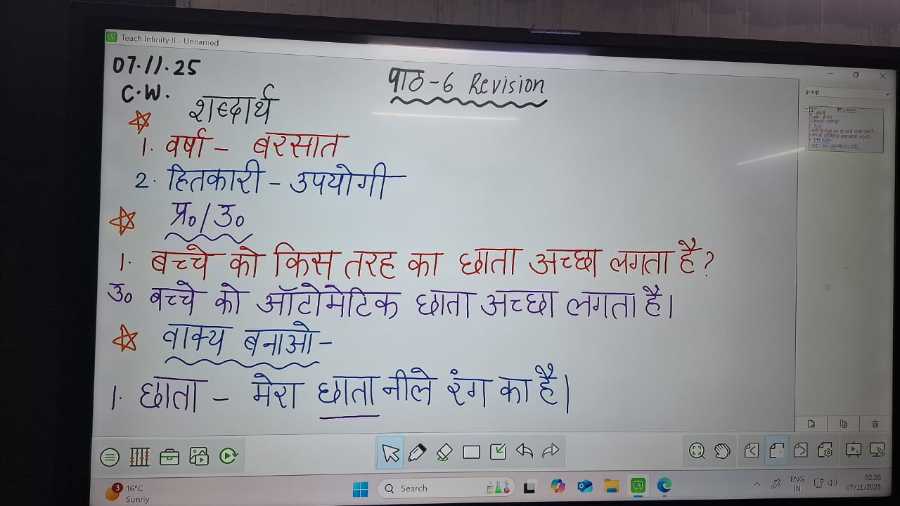 Teach Infinity II - Unnamed
07.11.25
पाठ-6 Revision
C.W.
शब्दार्थ
1. वर्षा - बरसात
2. हितकारी - उपयोगी
प्र०/उ०
1. बच्चे को किस तरह का छाता अच्छा लगता है?
उ० बच्चे को ऑटोमेटिक छाता अच्छा लगता है।
वाक्य बनाओ-
1. छाता - मेरा छाता नीले रंग का है।
3
16°C
Sunny
Search
ENG
IN
07/11/2025